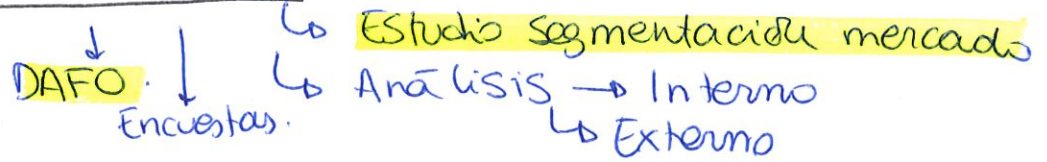 ↳ Estudio segmentación mercado
DAFO. ↳ Análisis → Interno
Encuestas. ↳ Externo